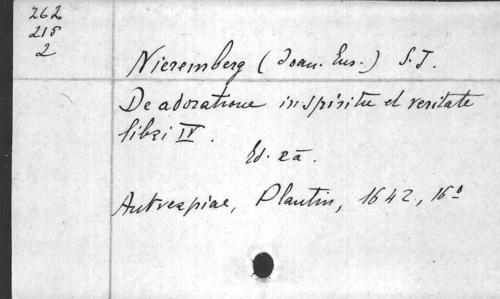 262
215
2
Nieremberg (Joan. Eus.) S.J.
De adoratione in spiritu et veritate
libri IV.
Ed. 2a.
Antverpiae, Plantin, 1642, 16°